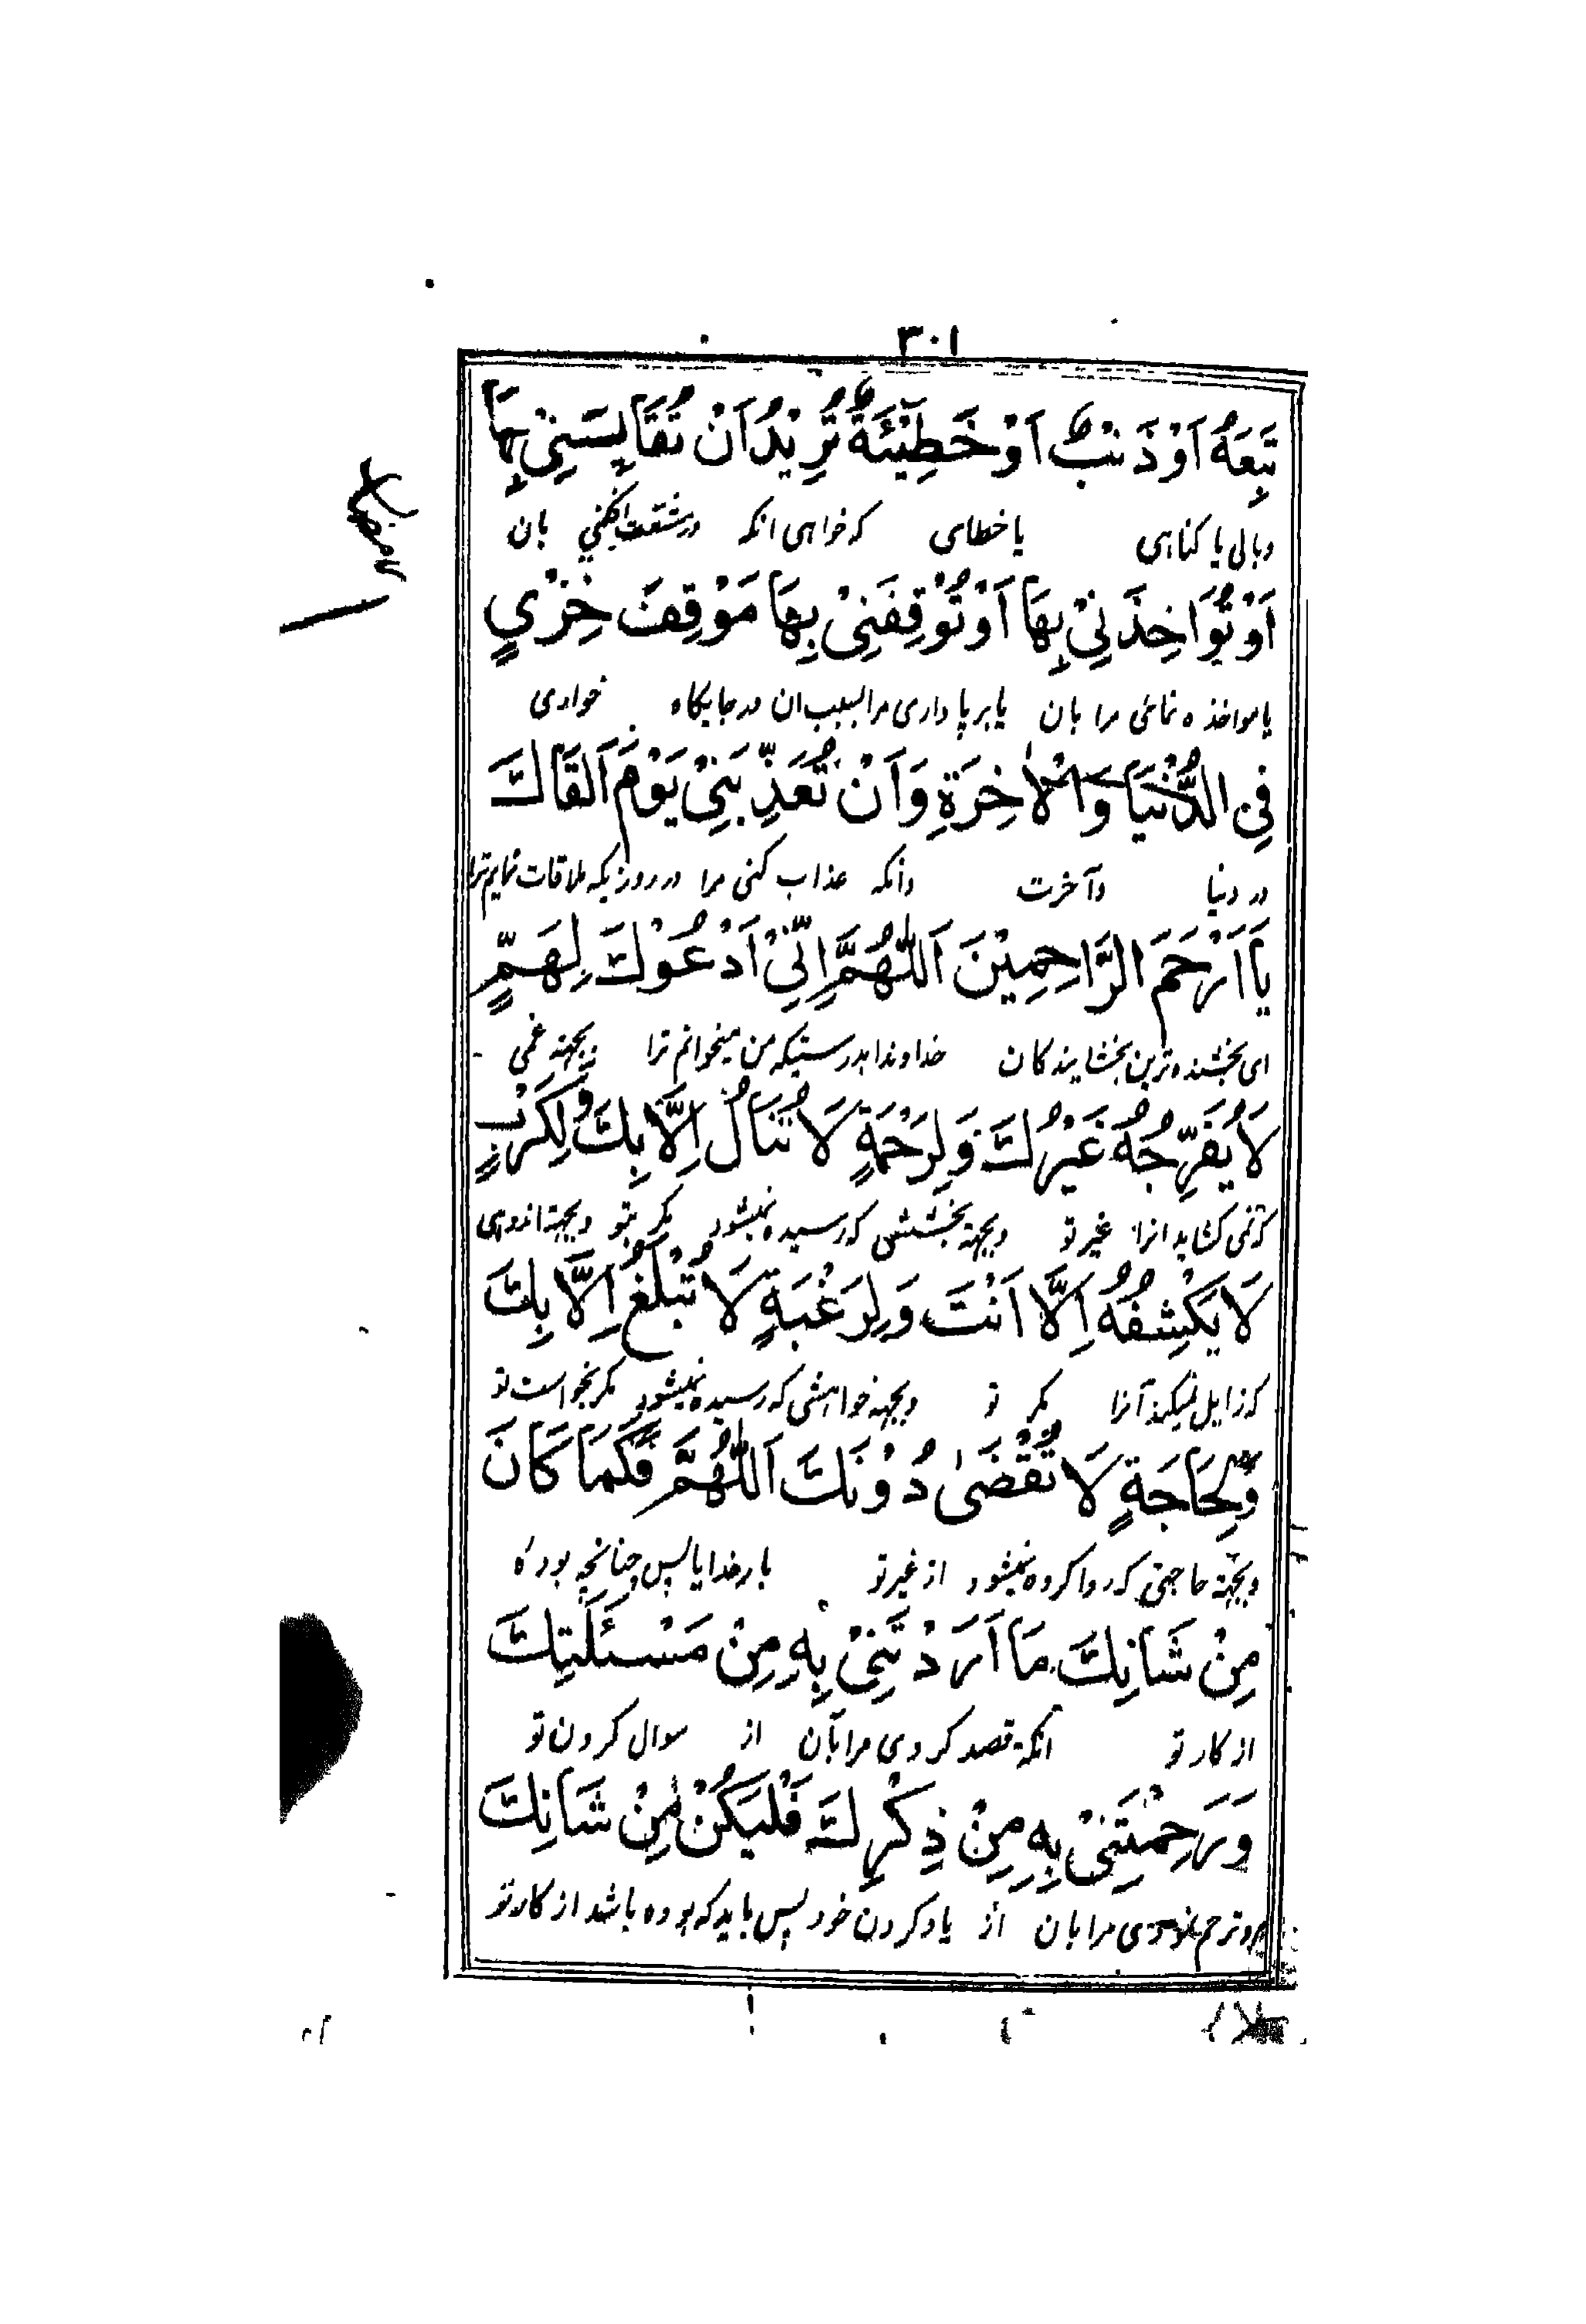 ٣٠١
تَبِعَةٌ اَوْ ذَنْبٌ اَوْ خَطِيْئَةٌ تُرِيْدُ اَنْ تُقَايِسَنِيْ بِهَا
وبالی یا کناهی یا خطای که خواهی انکه در مشقت افکنی بان
اَوْ تُوَاخِذَنِيْ بِهَا اَوْ تُوْقِفَنِيْ بِهَا مَوْقِفَ خِزْيٍ
یا مواخذه نمائی مرا بان یا برپا داری مرا بسبب ان در جایکاه خواری
فِي الدُّنْيَا وَالْاٰخِرَةِ وَاَنْ تُعَذِّبَنِيْ يَوْمَ اَلْقَاكَ
در دنیا وآخرت وانکه عذاب کنی مرا در روزیکه ملاقات نمایم ترا
يَا اَرْحَمَ الرَّاحِمِيْنَ اَللّٰهُمَّ اِنِّيْ اَدْعُوْكَ لِهَمٍّ
ای بخشنده ترین بخشایندکان خداوندا بدرستیکه من میخوانم ترا بجهة غمی
لَا يُفَرِّجُهُ غَيْرُكَ وَلِرَحْمَةٍ لَا تُنَالُ اِلَّا بِكَ وَلِكَرْبٍ
که نمی کشاید انرا غیر تو وبجهة بخششی که رسیده نمیشود مکر بتو وبجهة اندوهی
لَا يَكْشِفُهُ اِلَّا اَنْتَ وَلِرَغْبَةٍ لَا تُبْلَغُ اِلَّا بِكَ
که زایل نمیکند آنرا مکر تو وبجهة خواهشی که رسیده نمیشود مکر بخواست تو
وَلِحَاجَةٍ لَا تُقْضَىٰ دُوْنَكَ اَللّٰهُمَّ فَكَمَا كَانَ
وبجهة حاجتی که روا کرده نمیشود از غیر تو بار خدایا پس چنانچه بوده
مِنْ شَانِكَ مَا اَرَدْتَنِيْ بِهِ مِنْ مَسْئَلَتِكَ
از کار تو انکه قصد کردی مرا بان از سوال کردن تو
وَرَحِمْتَنِيْ بِهِ مِنْ ذِكْرِكَ فَلْيَكُنْ مِنْ شَانِكَ
وترحم نمودی مرا بان از یاد کردن خود پس باید که بوده باشد از کار تو